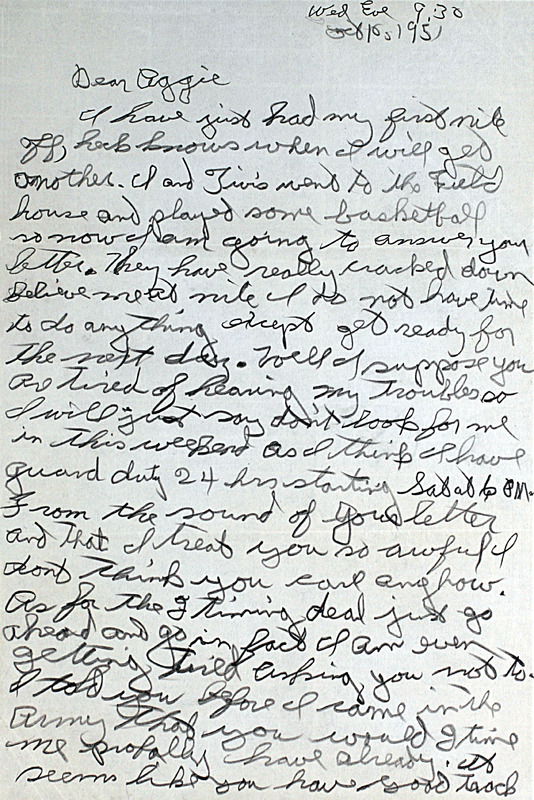 Wed Eve 9:30
1951
Dear Aggie
I have just had my first nite
off, heck knows when I will get
another. I and Tivis went to the Field
house and played some basketball
so now I am going to answer you
letter. They have really cracked down
believe me at nite I do not have time
to do anything except get ready for
the next day. Well I suppose you
are tired of hearing my troubles so
I will just say don't look for me
in this weekend as I think I have
guard duty 24 hrs starting Sat at 6 PM.
From the sound of your letter
and that I treat you so awful I
dont think you care anyhow.
As for the 2 timing deal just go
ahead and go in fact I am even
getting tired asking you not to.
I told you before I came in the
Army that you would 2 time
me probally have already. It
seems like you have good